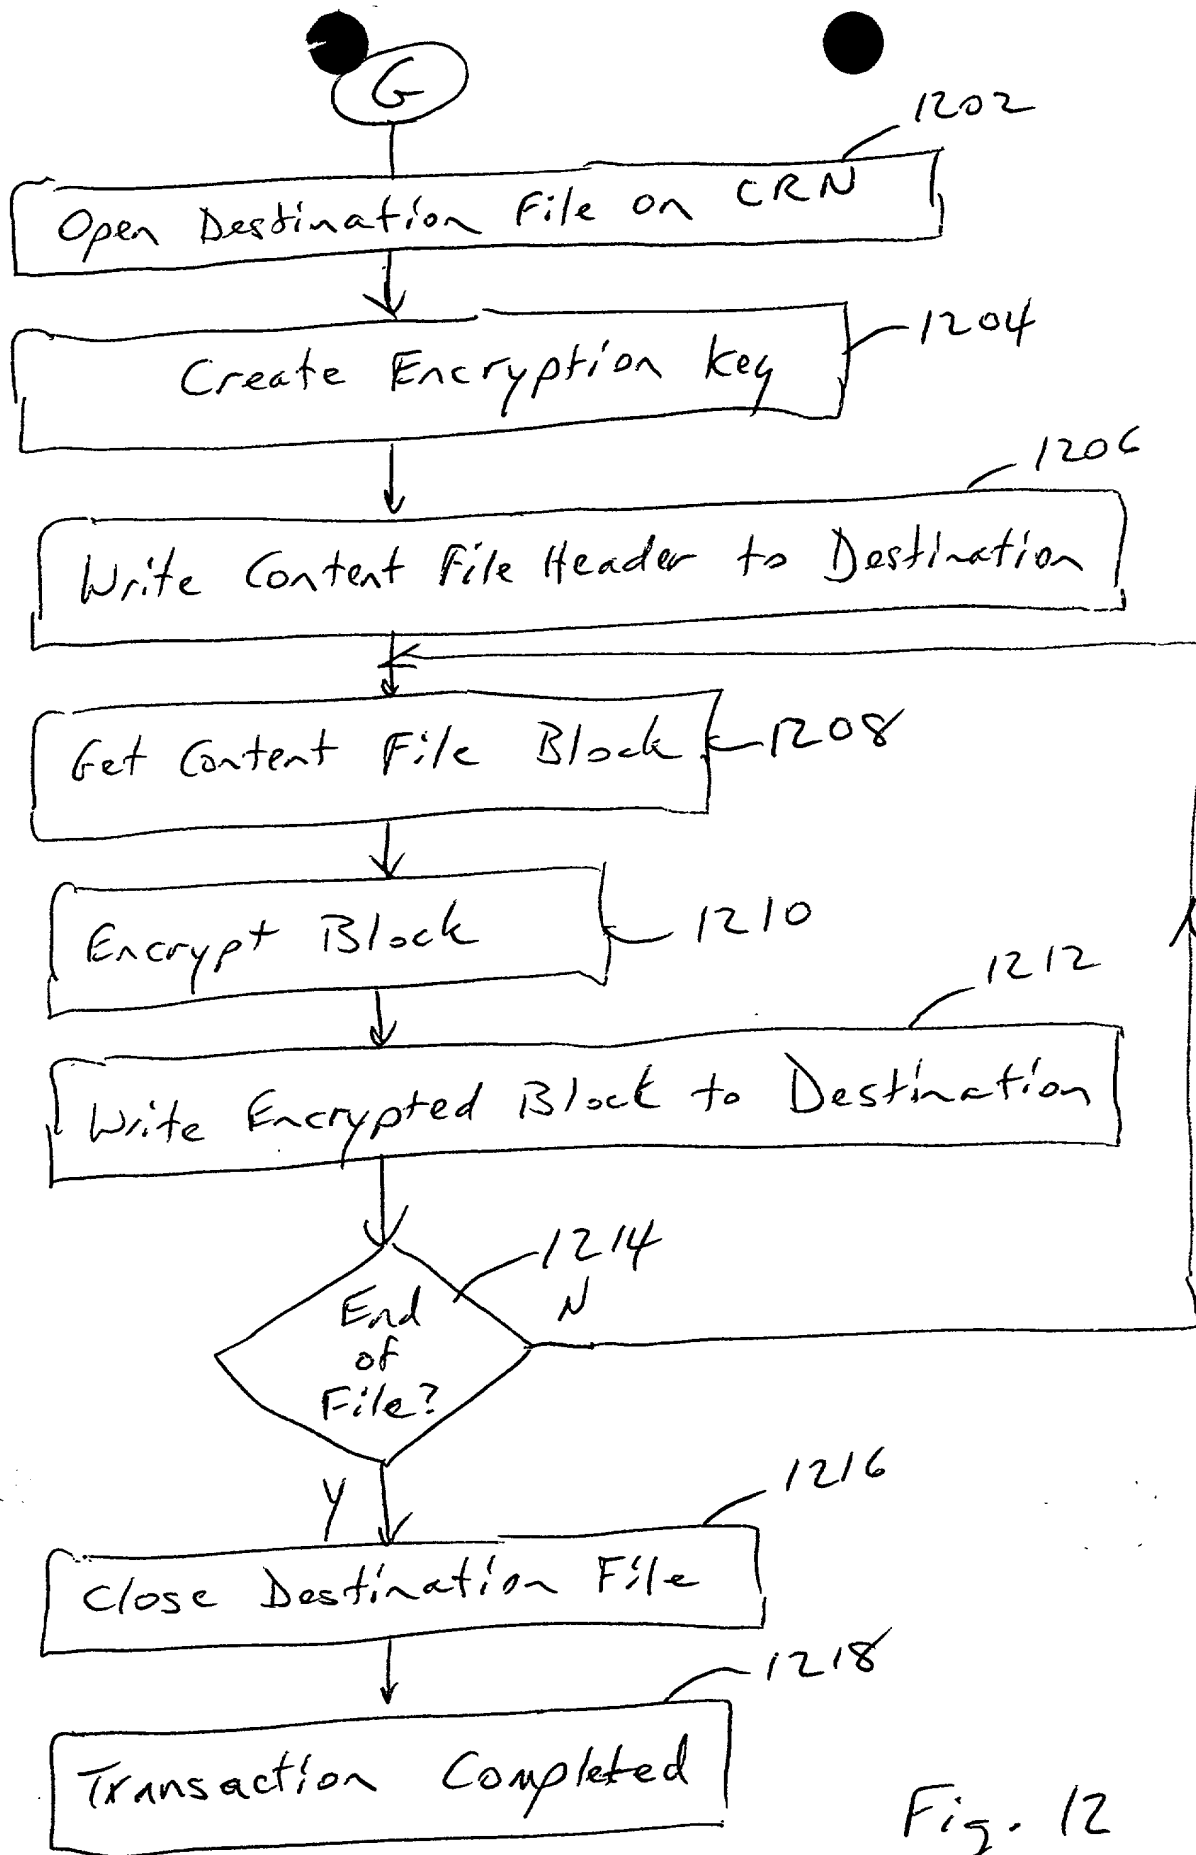 G
1202
Open Destination File on CRN
1204
Create Encryption Key
1206
Write Content File Header to Destination
Get Content File Block
1208
Encrypt Block
1210
1212
Write Encrypted Block to Destination
1214
N
End
of
File?
Y
1216
Close Destination File
1218
Transaction Completed
Fig. 12